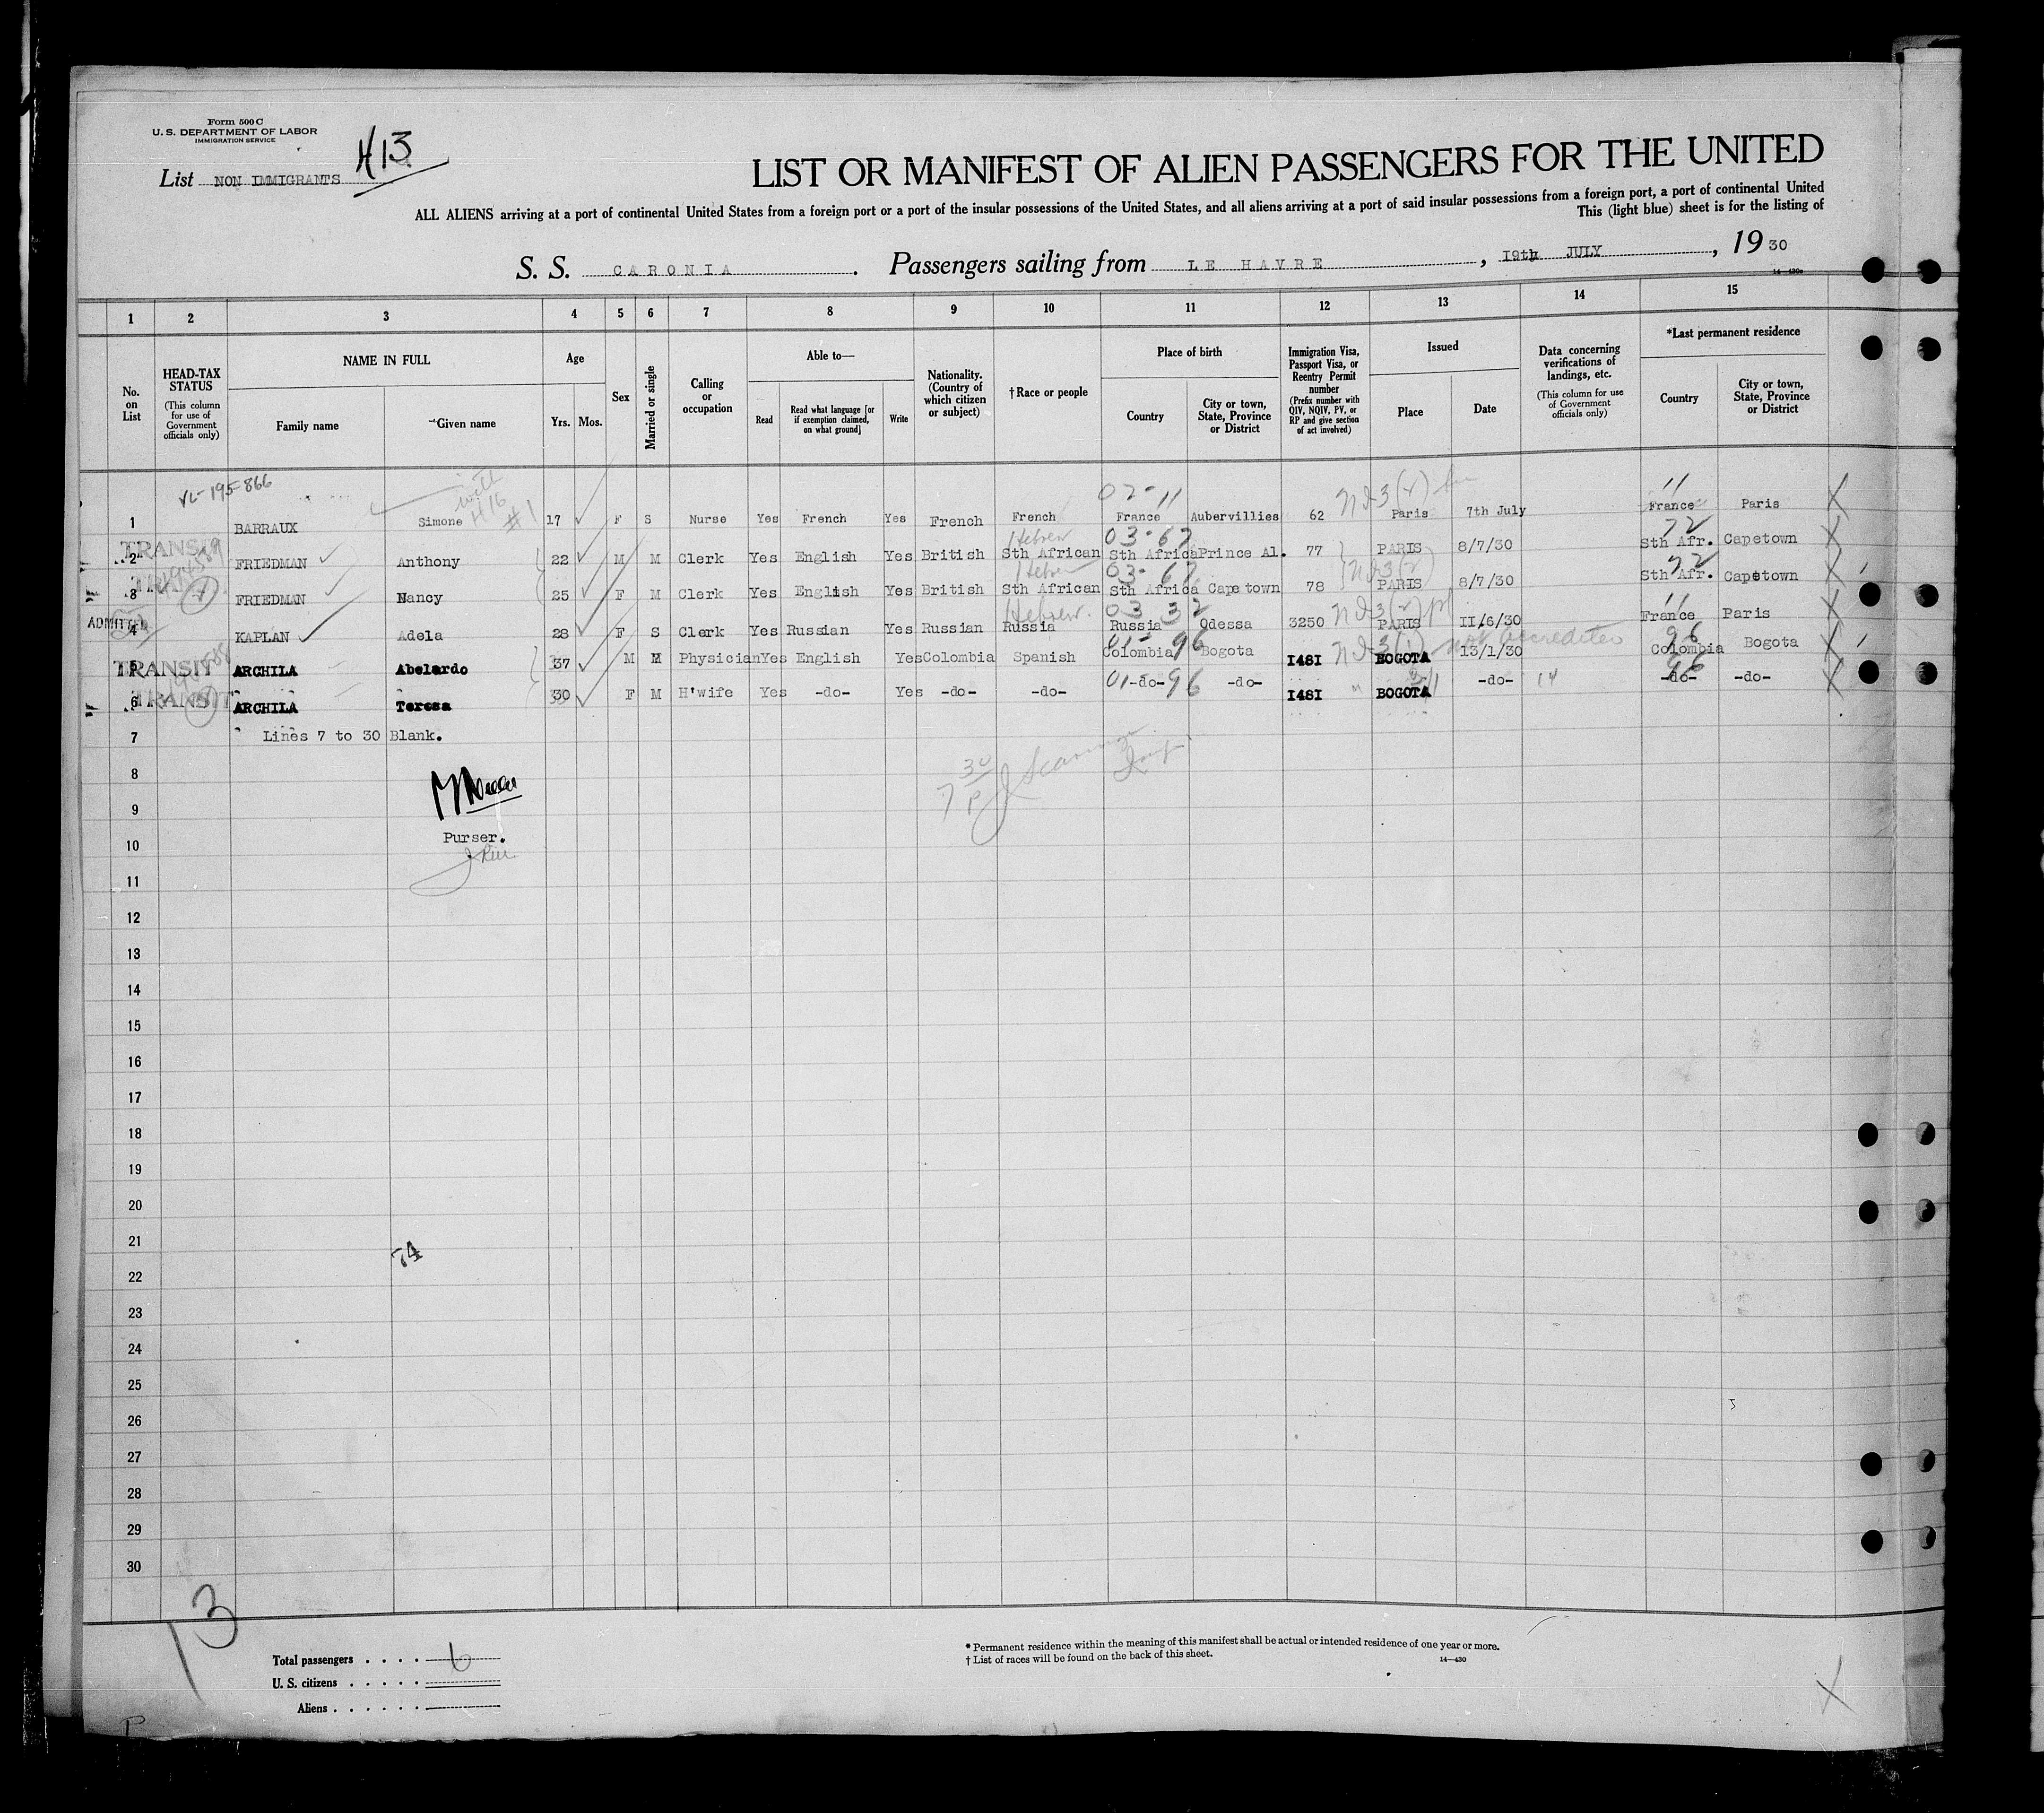 Form 500 C
U. S. DEPARTMENT OF LABOR
IMMIGRATION SERVICE
H13
List NON IMMIGRANTS
LIST OR MANIFEST OF ALIEN PASSENGERS FOR THE UNITED
ALL ALIENS arriving at a port of continental United States from a foreign port or a port of the insular possessions of the United States, and all aliens arriving at a port of said insular possessions from a foreign port, a port of continental United
This (light blue) sheet is for the listing of
S. S. CARONIA. Passengers sailing from LE HAVRE, 19th JULY, 1930
14—430a
1 2 3 4 5 6 7 8 9 10 11 12 13 14 15
No. on List
HEAD-TAX STATUS (This column for use of Government officials only)
NAME IN FULL Family name Given name
Age Yrs. Mos.
Sex
Married or single
Calling or occupation
Able to— Read Read what language [or if exemption claimed, on what ground] Write
Nationality. (Country of which citizen or subject)
†Race or people
Place of birth Country City or town, State, Province or District
Immigration Visa, Passport Visa, or Reentry Permit number (Prefix number with QIV, NQIV, PV, or RP and give section of act involved)
Issued Place Date
Data concerning verifications of landings, etc. (This column for use of Government officials only)
*Last permanent residence Country City or town, State, Province or District
VL-195-866 with H16 #1 02-11 11
1 BARRAUX Simone 17 F S Nurse Yes French Yes French French France Aubervillies 62 Paris 7th July France Paris X
Hebrew 03-67 72
TRANSIT 2 FRIEDMAN Anthony 22 M M Clerk Yes English Yes British Sth African Sth Africa Prince Al. 77 PARIS 8/7/30 Sth Afr. Capetown X
Hebrew 03-67 72
3 FRIEDMAN Nancy 25 F M Clerk Yes English Yes British Sth African Sth Africa Cape town 78 PARIS 8/7/30 Sth Afr. Capetown X
Hebrew. 03 32 11
ADMITTED 4 KAPLAN Adela 28 F S Clerk Yes Russian Yes Russian Russia Russia Odessa 3250 PARIS II/6/30 France Paris X
01-96 96
TRANSIT 5 ARCHILA Abelardo 37 M M Physician Yes English Yes Colombia Spanish Colombia Bogota I48I BOGOTA 13/1/30 Colombia Bogota X
01 96 96
TRANSIT 6 ARCHILA Teresa 30 F M H'wife Yes -do- Yes -do- -do- -do- -do- I48I BOGOTA -do- 14 -do- -do- X
7 Lines 7 to 30 Blank.
8
9
Purser.
10
11
12
13
14
15
16
17
18
19
20
21
22
23
24
25
26
27
28
29
30
13
Total passengers . . . . 6
U. S. citizens . . . . .
Aliens . . . . . .
* Permanent residence within the meaning of this manifest shall be actual or intended residence of one year or more.
† List of races will be found on the back of this sheet.
14—430
X